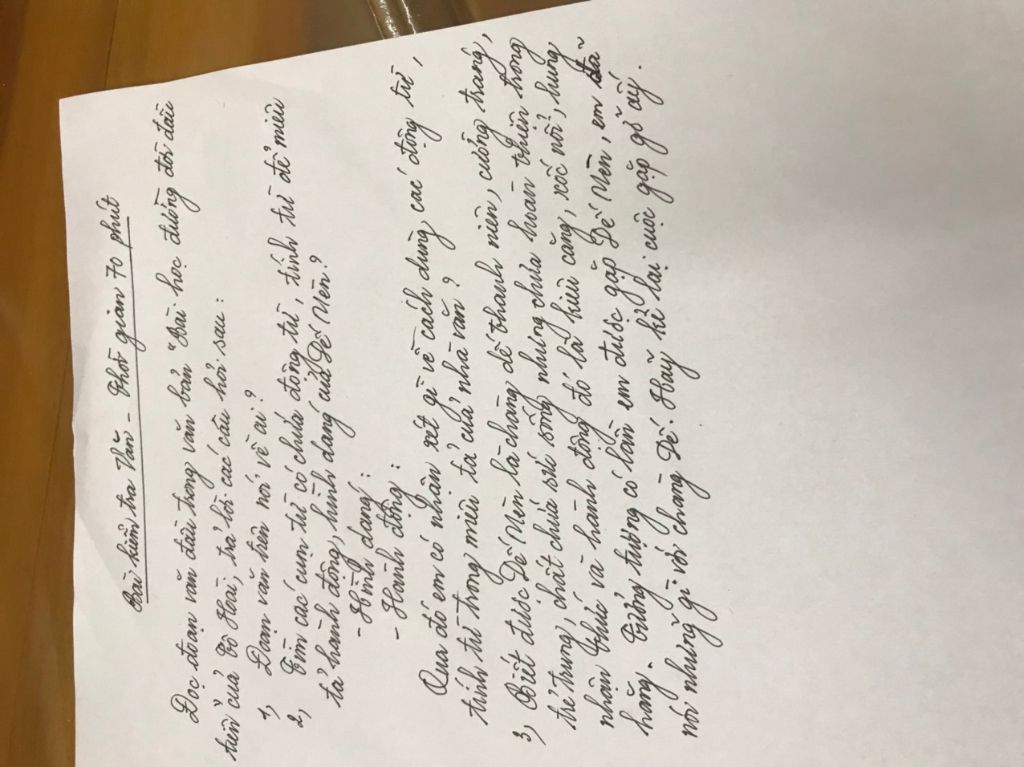 Bài kiểm tra Văn - Thời gian 70 phút
Đọc đoạn văn đầu trong văn bản "Bài học đường đời đầu
tiên" của Tô Hoài, trả lời các câu hỏi sau:
1, Đoạn văn trên nói về ai?
2, Tìm các cụm từ có chứa động từ, tính từ để miêu
tả hành động, hình dáng của Dế Mèn?
- Hình dáng:
- Hành động:
Qua đó em có nhận xét gì về cách dùng các động từ,
tính từ trong miêu tả của nhà văn?
3, Biết được Dế Mèn là chàng dế thanh niên, cường tráng,
trẻ trung, chất chứa sức sống nhưng chưa hoàn thiện trong
nhận thức và hành động đó là kiêu căng, xốc nổi, hung
hăng. Tưởng tượng có lần em được gặp Dế Mèn, em đã
nói những gì với chàng Dế. Hãy kể lại cuộc gặp gỡ ấy.